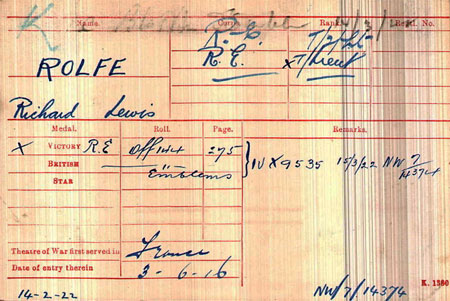 Name. Corps. Rank. Regtl. No.
K
R.E. T/2/Lt
ROLFE R.E. x T/Lieut
Richard Lewis
Medal. Roll. Page. Remarks.
X VICTORY R.E Off 144 275
BRITISH " Emblems } IV X 9535 15/3/22 NW 7/14374
STAR
Theatre of War first served in France
Date of entry therein 3-6-16
14-2-22 NW/7/14374 K. 1380